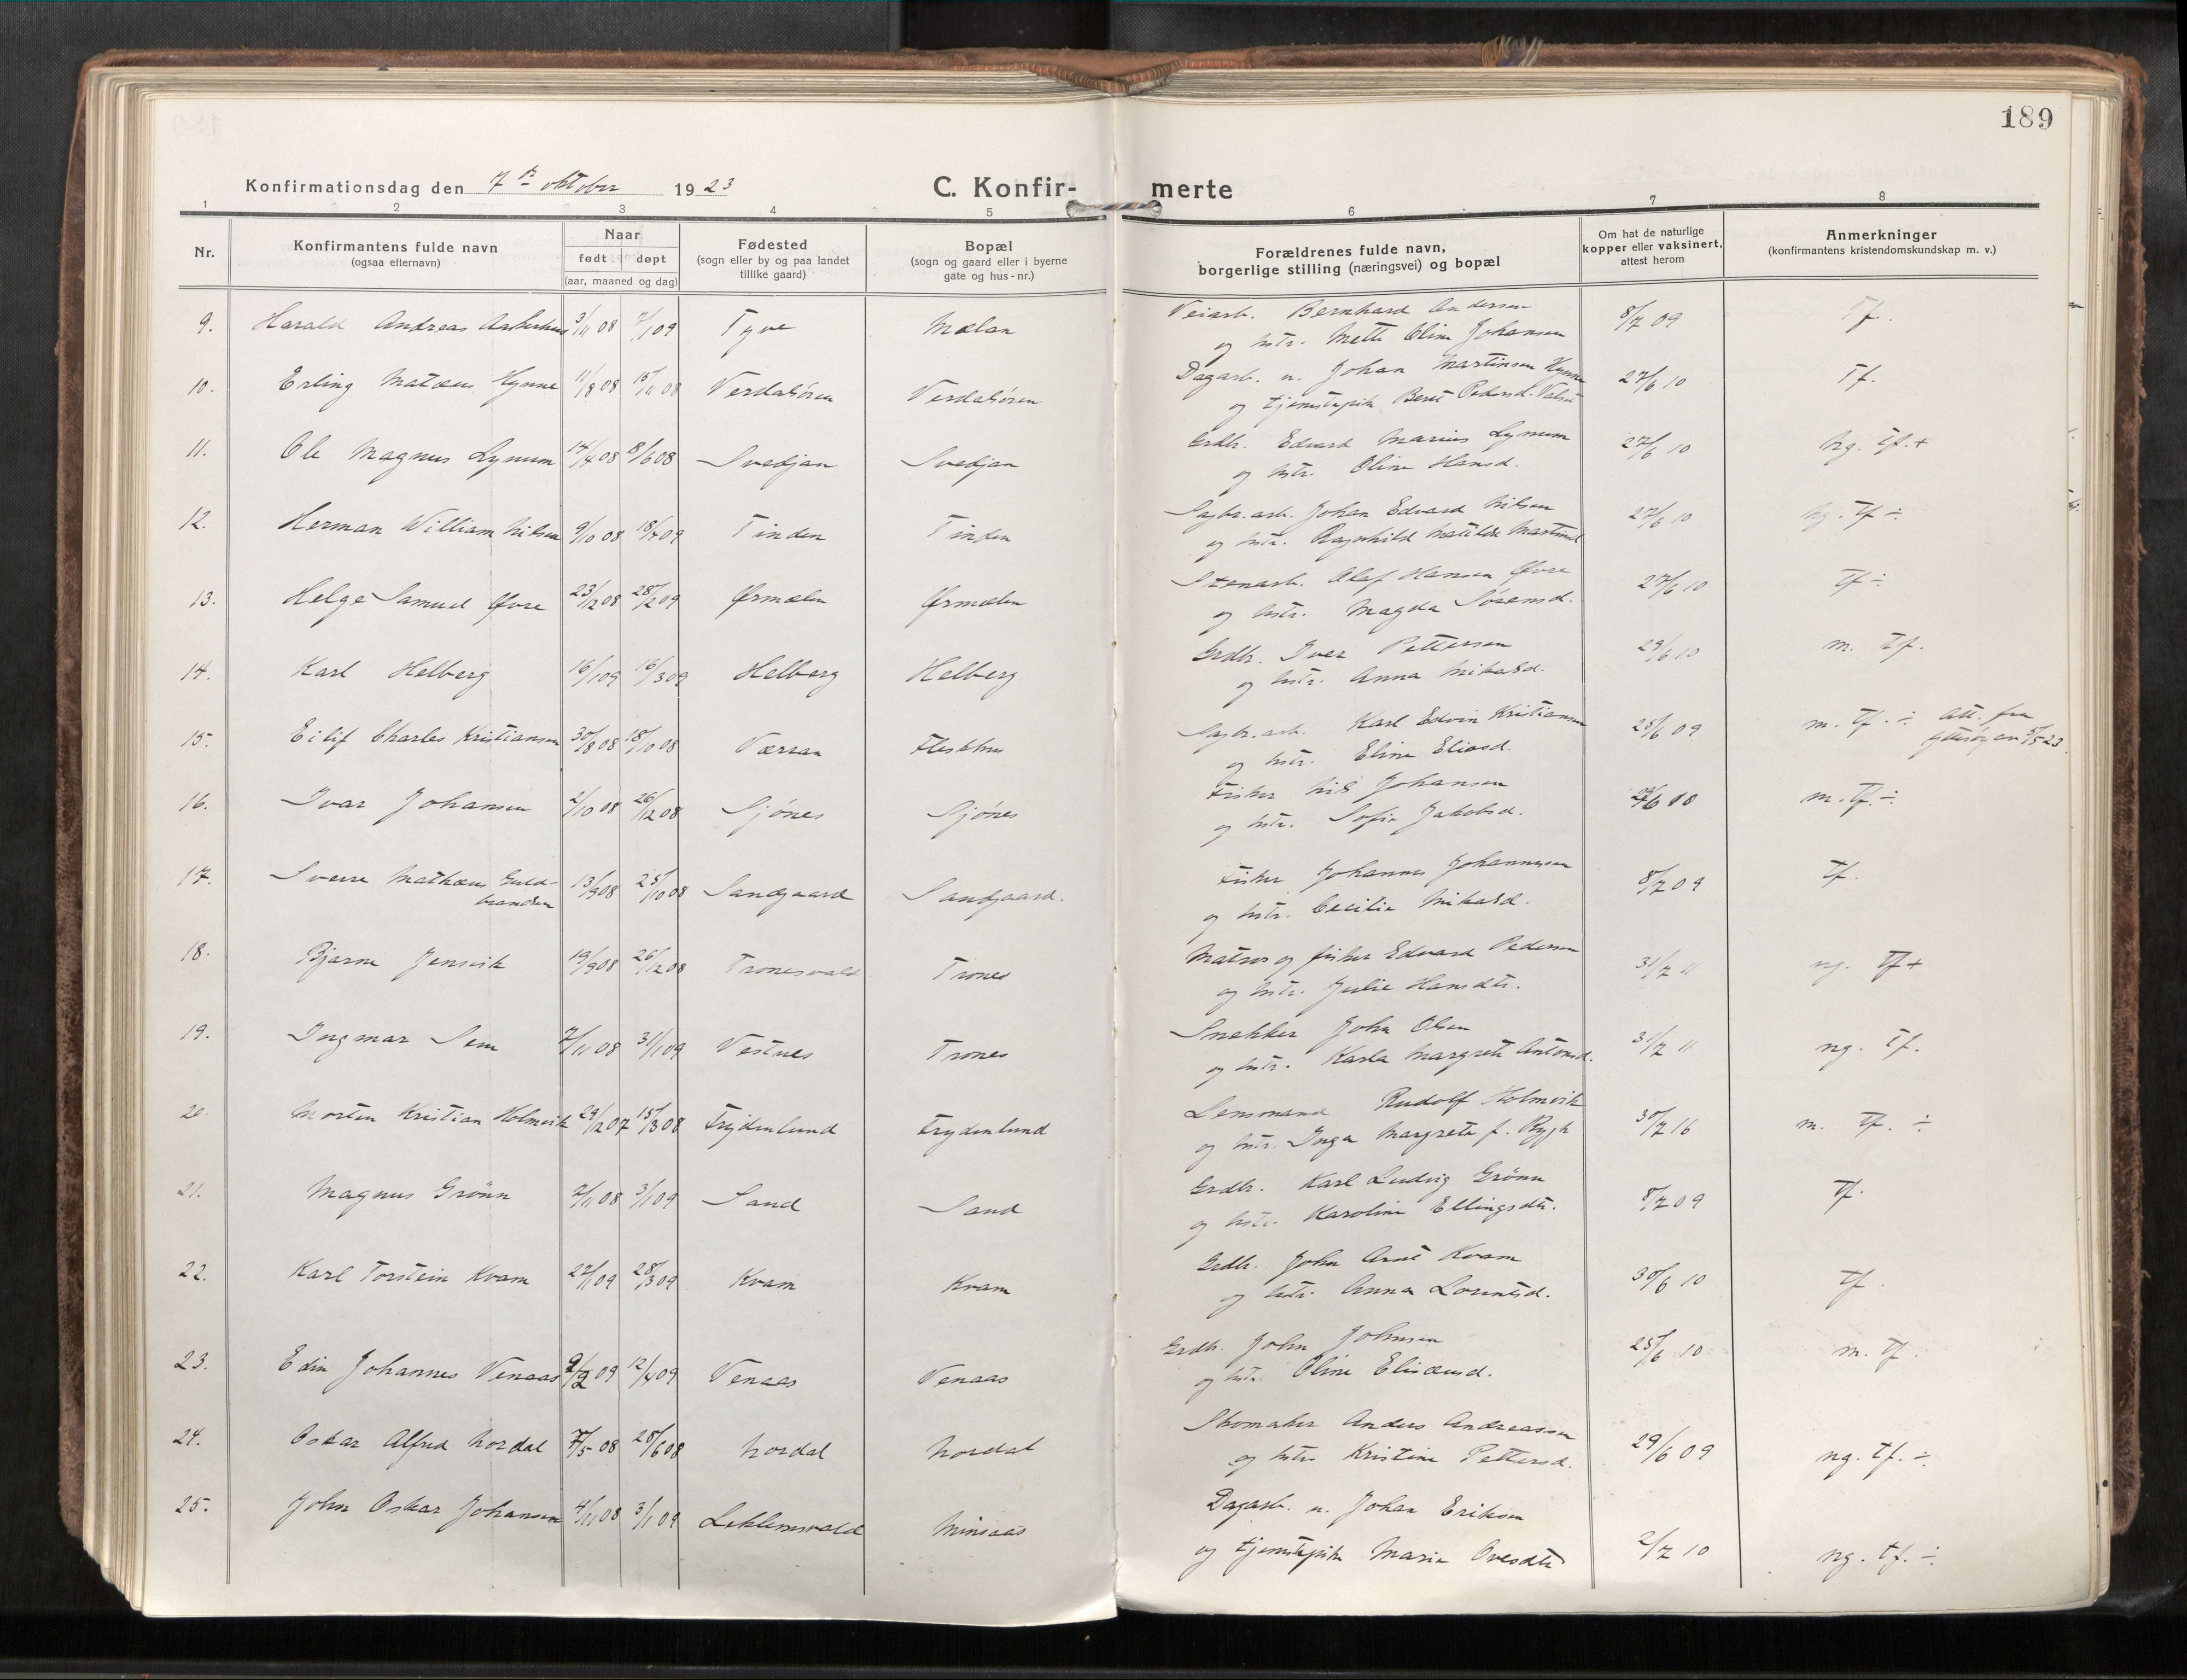 189
Konfirmationsdag den 7de oktober 1923
C. Konfir- merte
1 2 3 4 5 6 7 8
Nr.
Konfirmantens fulde navn
(ogsaa efternavn)
Naar
født døpt
(aar, maaned og dag)
Fødested
(sogn eller by og paa landet
tillike gaard)
Bopæl
(sogn og gaard eller i byerne
gate og hus-nr.)
Forældrenes fulde navn,
borgerlige stilling (næringsvei) og bopæl
Om hat de naturlige
kopper eller vaksinert,
attest herom
Anmerkninger
(konfirmantens kristendomskundskap m. v.)
9. Harald Andreas 3/11 08 Tyve Mælan Veiarb. Bernhard Andersen 8/7 09 Tf.
og hstr. Mette Oline Johansen
10. Erling Matæus Hynne 11/8 08 15/11 08 Verdalsøren Verdalsøren Dagarb. u. Johan Martinsen Hynne 27/6 10 Tf.
og tjenestepike Berit Pedersd. Valset
11. Ole Magnus Lynum 14/4 08 8/6 08 Svedjan Svedjan Grdbr. Edvard Marius Lynum 27/6 10 ng. Tf. +
og hstr. Oline Hansd.
12. Herman William Nilsen 9/10 08 18/4 09 Tinden Tinden Sagbr.arb. Johan Edvard Nilsen 27/6 10 ng. Tf ÷
og hstr. Ragnhild Matilde Martinsd
13. Helge Samuel Øvre 23/12 08 28/2 09 Ørmelen Ørmelen Stenarb. Olaf Hansen Øvre 27/6 10 Tf ÷
og hstr. Magda Sørensd.
14. Karl Helberg 16/1 09 16/3 09 Helberg Helberg Grdbr. Iver Pettersen 29/6 10 m. Tf.
og hstr. Anna Mikalsd.
15. Eilif Charles Kristiansen 30/8 08 18/10 08 Værran Fleskhus Sagbr.arb. Karl Edvin Kristiansen 28/6 09 m. Tf. ÷ att. fra
og hstr. Eline Eliasd. 5/5 23.
16. Ivar Johansen 2/10 08 26/12 08 Sjönes Sjönes Fisker Nils Johansen m. Tf. ÷
og hstr. Sofie Jakobsd.
17. Sverre Mathæus Guld- 13/9 08 25/10 08 Sandgaard Sandgaard. Fisker Johannes Johannessen 8/7 09 Tf.
brandsen og hstr. Cecilie Mikalsd.
18. Bjarne Jensvik 19/9 08 26/12 08 Tronesvald Trones Matros og fisker Edvard Pedersen 31/7 11 ng. Tf +
og hstr. Julie Hansdtr.
19. Ingmar Sem 7/11 08 31/1 09 Vestnes Trones Snekker John Olsen 31/7 11 ng. Tf.
og hstr. Karla Margrete Antonsd.
20. Morten Kristian Holmvik 29/12 07 15/3 08 Frydenlund Frydenlund Lensmand Rudolf Holmvik 30/7 16 m. Tf. ÷
og hstr. Inga Margrete f. Rygh
21. Magnus Grönn 2/11 08 3/1 09 Sand Sand Grdbr. Karl Ludvig Grönn 8/7 09 Tf.
og hstr. Karoline Ellingsdtr.
22. Karl Torstein Kvam 22/1 09 28/3 09 Kvam Kvam Grdbr. John Arnt Kvam 30/6 10 Tf.
og hstr. Anna Lorentsd.
23. Edin Johannes Venaas 9/2 09 12/4 09 Venaas Venaas Grdbr. John Johnsen 25/6 10 m. Tf
og hstr. Oline Elisæusd.
24. Oskar Alfred Nordal 7/5 08 28/6 08 Nordal Nordal Skomaker Anders Andreassen 29/6 09 ng. tf. ÷
og hstr. Kristine Pettersd.
25. John Oskar Johansen 4/11 08 3/1 09 Leklemsvald Minsaas Dagarb. u. Johan Eriksen 2/7 10 ng. tf. ÷
og tjenestepike Marie Ovesdtr